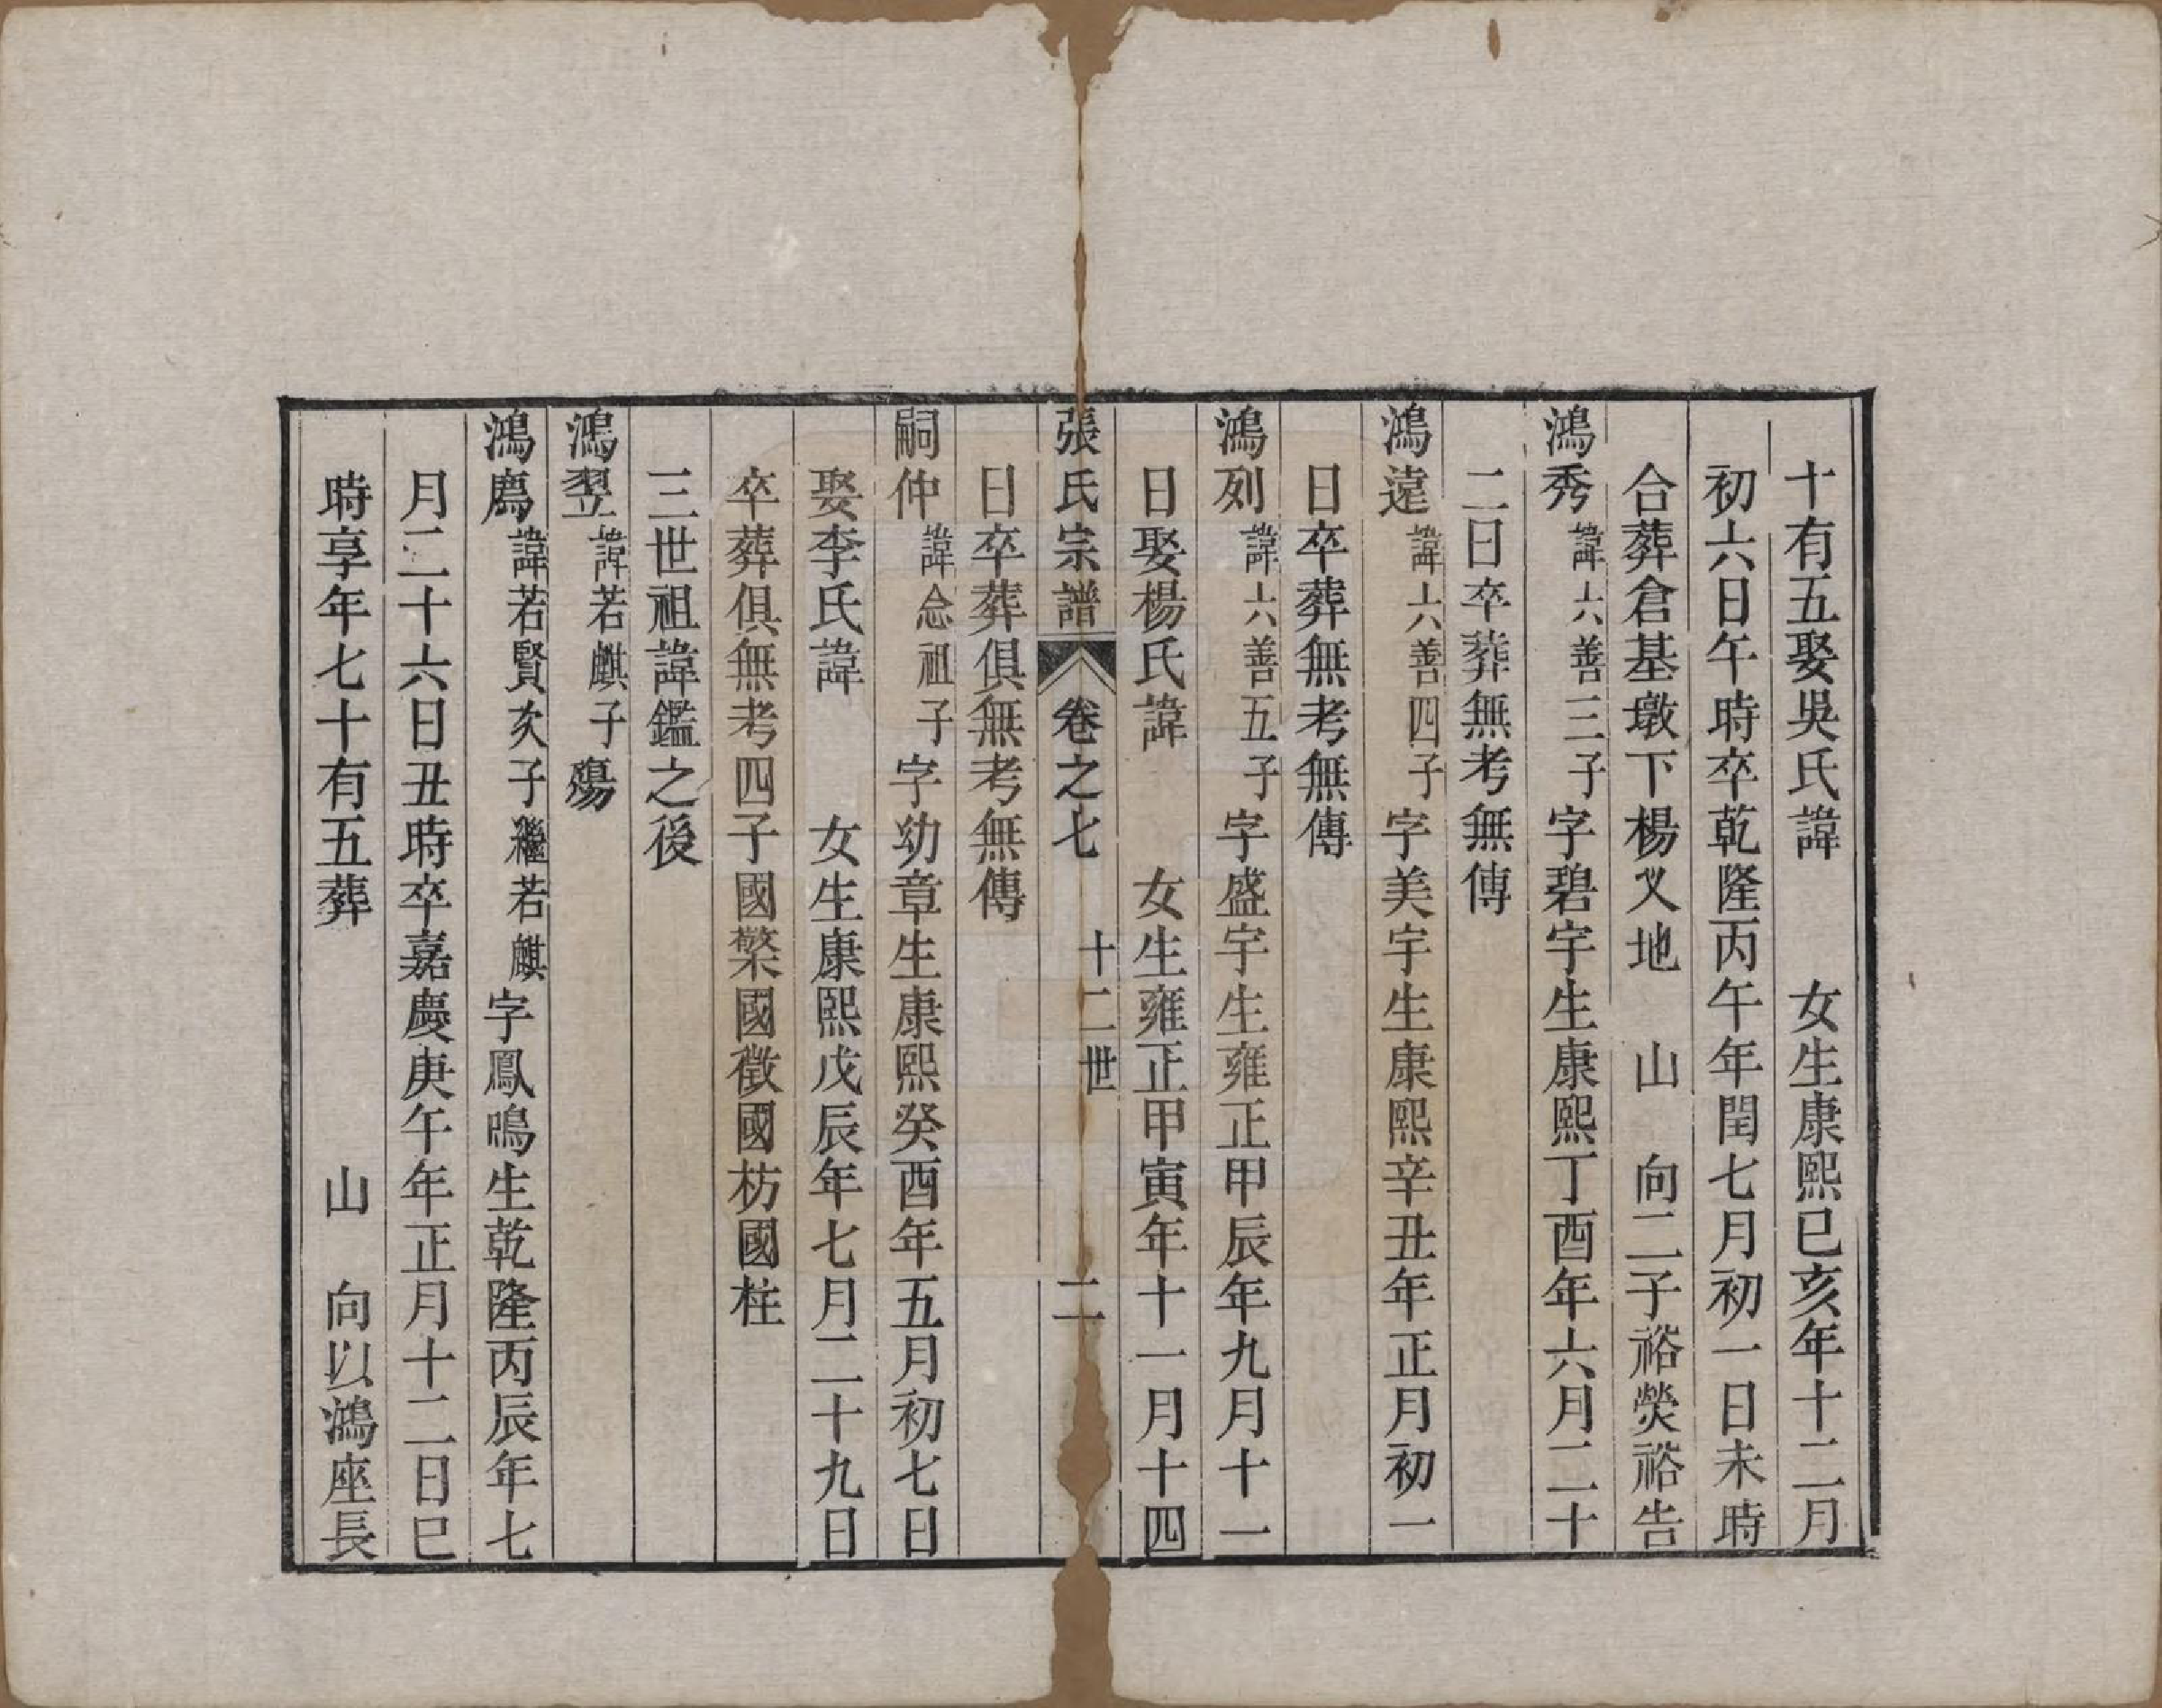 十有五娶吳氏諱　　女生康熙已亥年十二月
初六日午時卒乾隆丙午年閏七月初一日未時
合葬倉基墩下楊乂地　山　向二子裕熒裕告
鴻秀諱六善三子字碧宇生康熙丁酉年六月二十
二日卒葬無考無傳
鴻遠諱六善四子字美宇生康熙辛丑年正月初一
日卒葬無考無傳
鴻列諱六善五子字盛宇生雍正甲辰年九月十一
日娶楊氏諱　　女生雍正甲寅年十一月十四
張氏宗譜　卷之七　十二世　二
日卒葬俱無考無傳
嗣仲諱念祖子字幼章生康熙癸酉年五月初七日
娶李氏諱　　女生康熙戊辰年七月二十九日
卒葬俱無考四子國棨國徵國枋國柱
三世祖諱鑑之後
鴻翌諱若麒子殤
鴻鷹諱若賢次子繼若麒字鳳鳴生乾隆丙辰年七
月二十六日丑時卒嘉慶庚午年正月十二日巳
時享年七十有五葬　　　　山　向以鴻座長